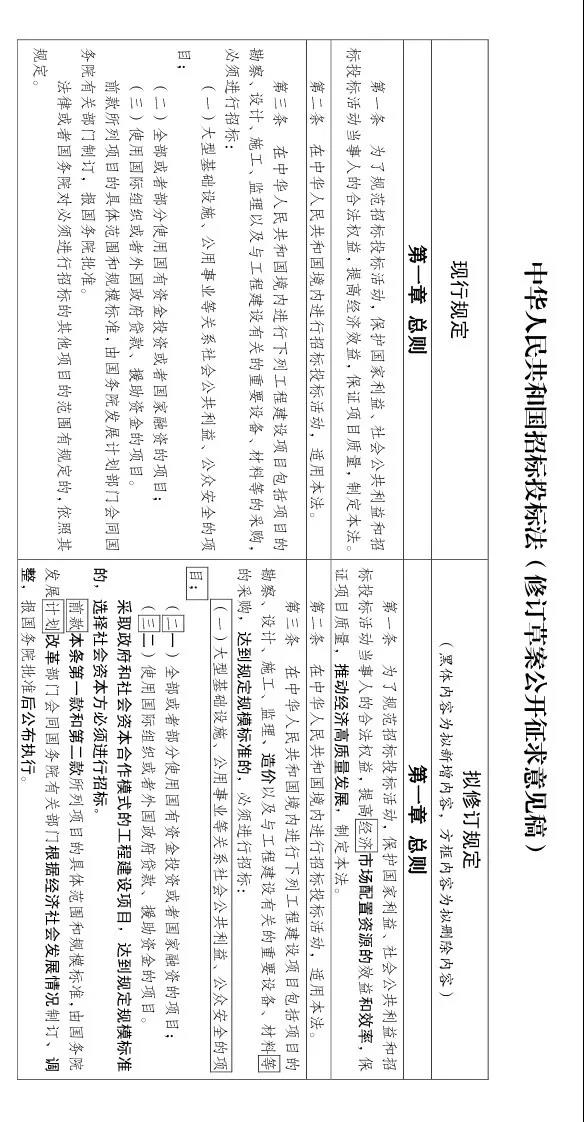 中华人民共和国招标投标法（修订草案公开征求意见稿）
现行规定
拟修订规定
（黑体内容为拟新增内容，方框内容为拟删除内容）
第一章 总则
第一章 总则
第一条 为了规范招标投标活动，保护国家利益、社会公共利益和招
标投标活动当事人的合法权益，提高经济效益，保证项目质量，制定本法。
第一条 为了规范招标投标活动，保护国家利益、社会公共利益和招
标投标活动当事人的合法权益，提高经济市场配置资源的效益和效率，保
证项目质量，推动经济高质量发展，制定本法。
第二条 在中华人民共和国境内进行招标投标活动，适用本法。
第二条 在中华人民共和国境内进行招标投标活动，适用本法。
第三条 在中华人民共和国境内进行下列工程建设项目包括项目的
勘察、设计、施工、监理以及与工程建设有关的重要设备、材料等的采购，
必须进行招标：
（一）大型基础设施、公用事业等关系社会公共利益、公众安全的项
目；
（二）全部或者部分使用国有资金投资或者国家融资的项目；
（三）使用国际组织或者外国政府贷款、援助资金的项目。
前款所列项目的具体范围和规模标准，由国务院发展计划部门会同国
务院有关部门制订，报国务院批准。
法律或者国务院对必须进行招标的其他项目的范围有规定的，依照其
规定。
第三条 在中华人民共和国境内进行下列工程建设项目包括项目的
勘察、设计、施工、监理、造价以及与工程建设有关的重要设备、材料等
的采购，达到规定规模标准的，必须进行招标：
（一）大型基础设施、公用事业等关系社会公共利益、公众安全的项
目；
（二一）全部或者部分使用国有资金投资或者国家融资的项目；
（三二）使用国际组织或者外国政府贷款、援助资金的项目。
采取政府和社会资本合作模式的工程建设项目，达到规定规模标准
的，选择社会资本方必须进行招标。
前款本条第一款和第二款所列项目的具体范围和规模标准，由国务院
发展计划改革部门会同国务院有关部门根据经济社会发展情况制订、调
整，报国务院批准后公布执行。